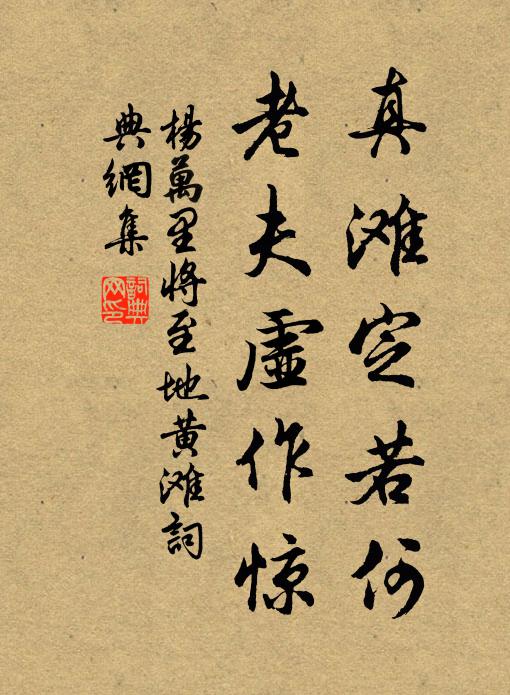 真滩定若何
老夫虛作惊
楊萬里將至地黄滩詞
典網集
詞典
网印